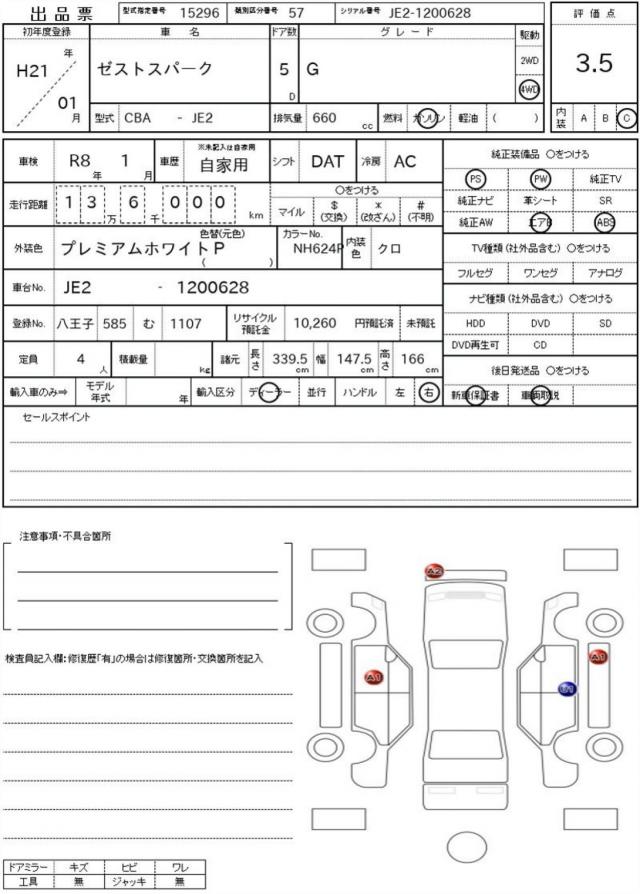 出品票 型式指定番号 15296 類別区分番号 57 シリアル番号 JE2-1200628
初年度登録 車名 ドア数 グレード 駆動 評価点
H21 年 01 月 ゼストスパーク 5 D G 2WD 4WD 3.5
型式 CBA - JE2 排気量 660 cc 燃料 ガソリン 軽油 ( ) 内装 A B C
車検 R8 年 1 月 車歴 ※未記入は自家用 自家用 シフト DAT 冷房 AC
純正装備品 ○をつける
PS PW 純正TV
純正ナビ 革シート SR
純正AW エアB ABS
走行距離 13 万 6 千 000 km ○をつける
マイル $ (交換) * (改ざん) # (不明)
外装色 プレミアムホワイトP 色替(元色) ( ) カラーNo. NH624P 内装色 クロ
TV種類(社外品含む) ○をつける
フルセグ ワンセグ アナログ
車台No. JE2 - 1200628
ナビ種類(社外品含む) ○をつける
登録No. 八王子 585 む 1107 リサイクル預託金 10,260 円預託済 未預託
HDD DVD SD
DVD再生可 CD
定員 4 人 積載量 kg 諸元 長さ 339.5 cm 幅 147.5 cm 高さ 166 cm
後日発送品 ○をつける
輸入車のみ⇒ モデル年式 年 輸入区分 ディーラー 並行 ハンドル 左 右
新車保証書 車両取説
セールスポイント
注意事項・不具合箇所
A2
検査員記入欄:修復歴「有」の場合は修復箇所・交換箇所を記入
A1
A1
U1
ドアミラー キズ ヒビ ワレ
工具 無 ジャッキ 無